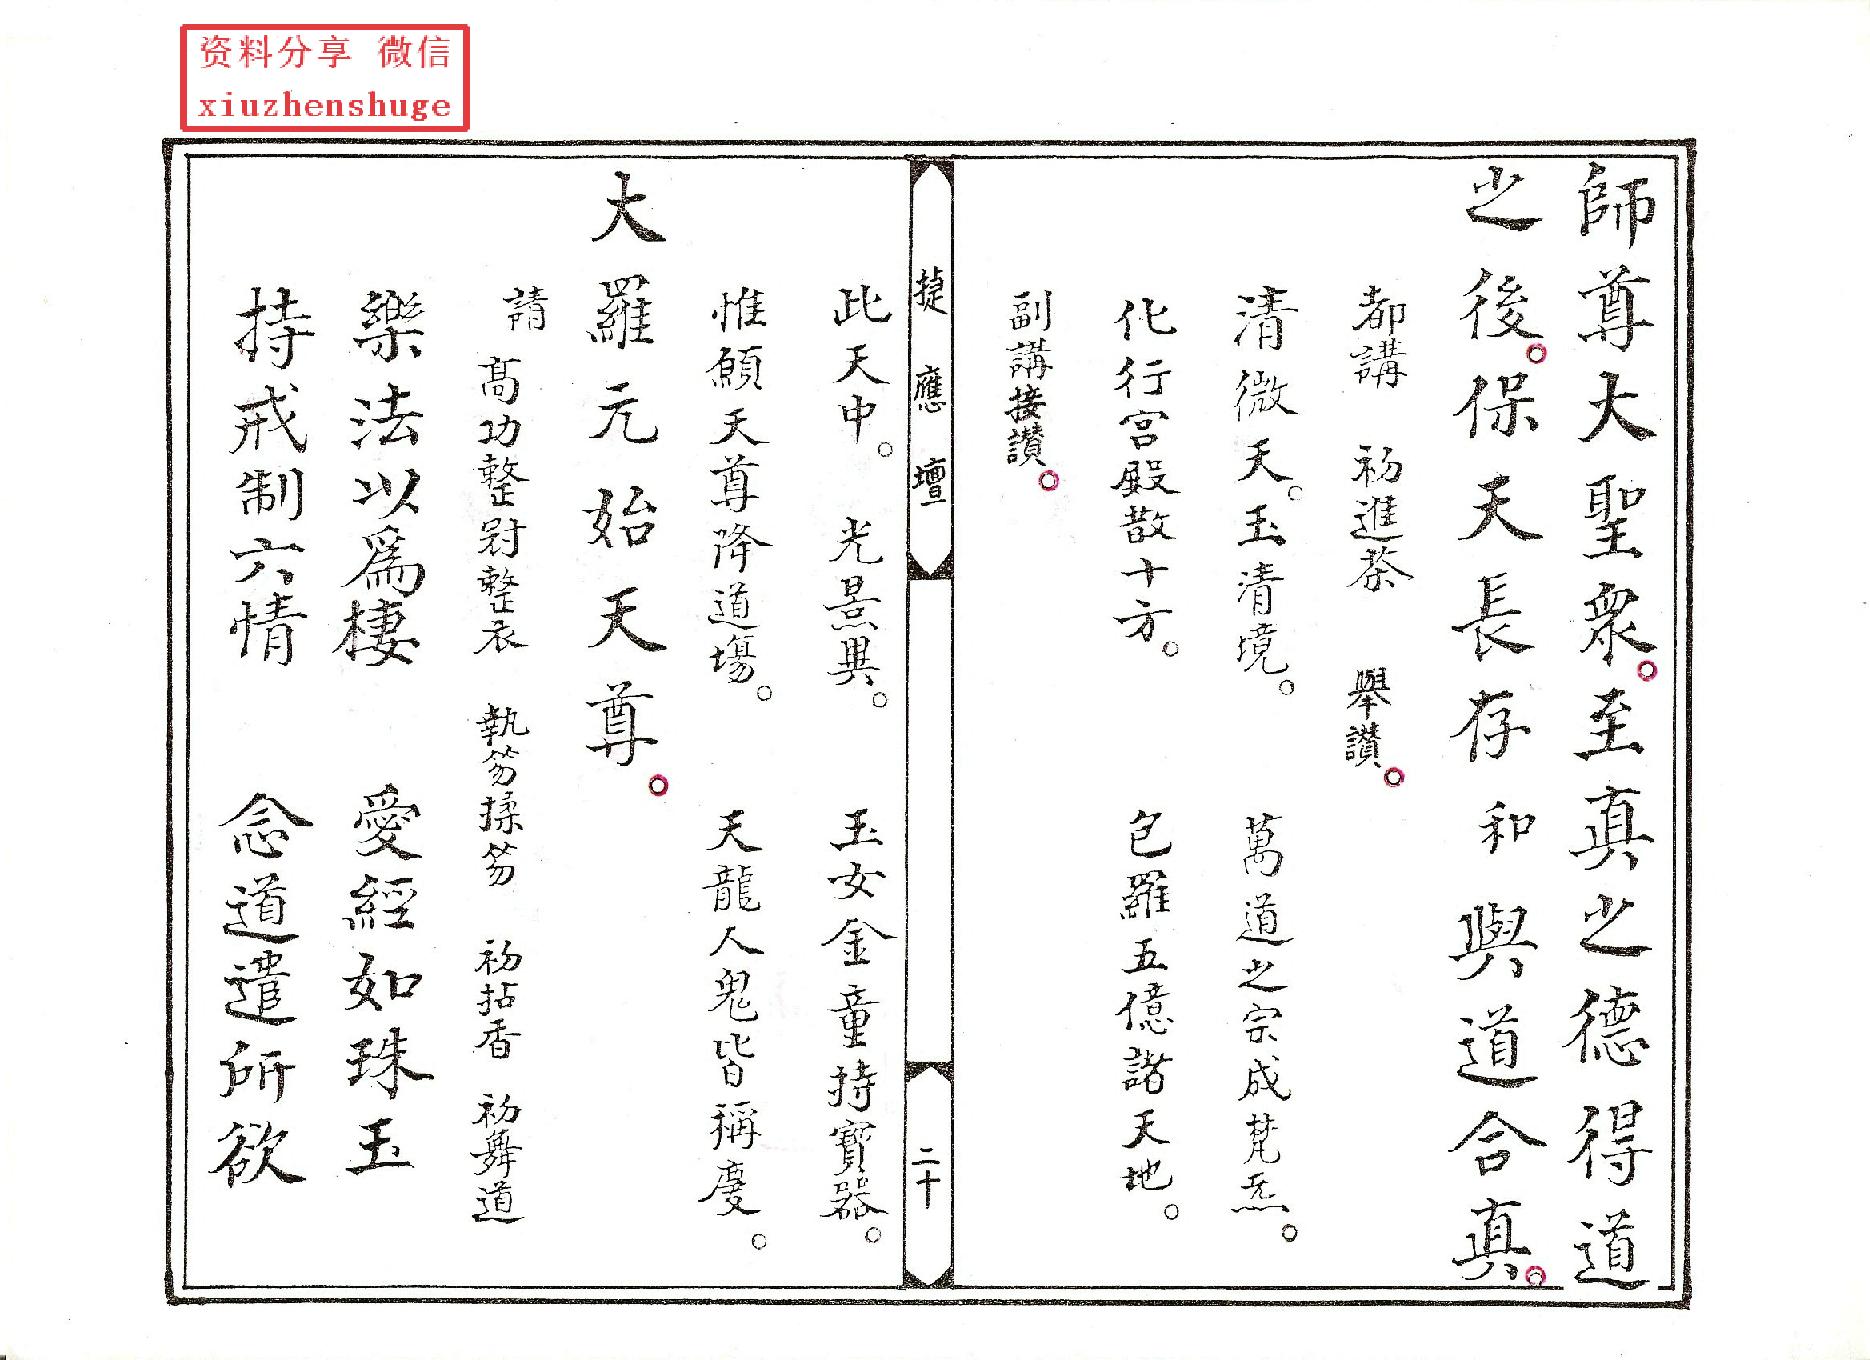 资料分享 微信
xiuzhenshuge
師尊大聖衆。至真之德得道
之後。保天長存和與道合真。
都講 初進茶 舉讚。
清微天。玉清境。 萬道之宗成梵炁。
化行宫殿散十方。 包羅五億諸天地。
副講接讚。
捷應壇
二十
此天中。光景異。 玉女金童持寶器。
惟願天尊降道場。 天龍人鬼皆稱慶。
大羅元始天尊。
請 高功整冠整衣 執笏揉笏 初拈香 初舞道
樂法以爲棲 愛經如珠玉
持戒制六情 念道遣所欲